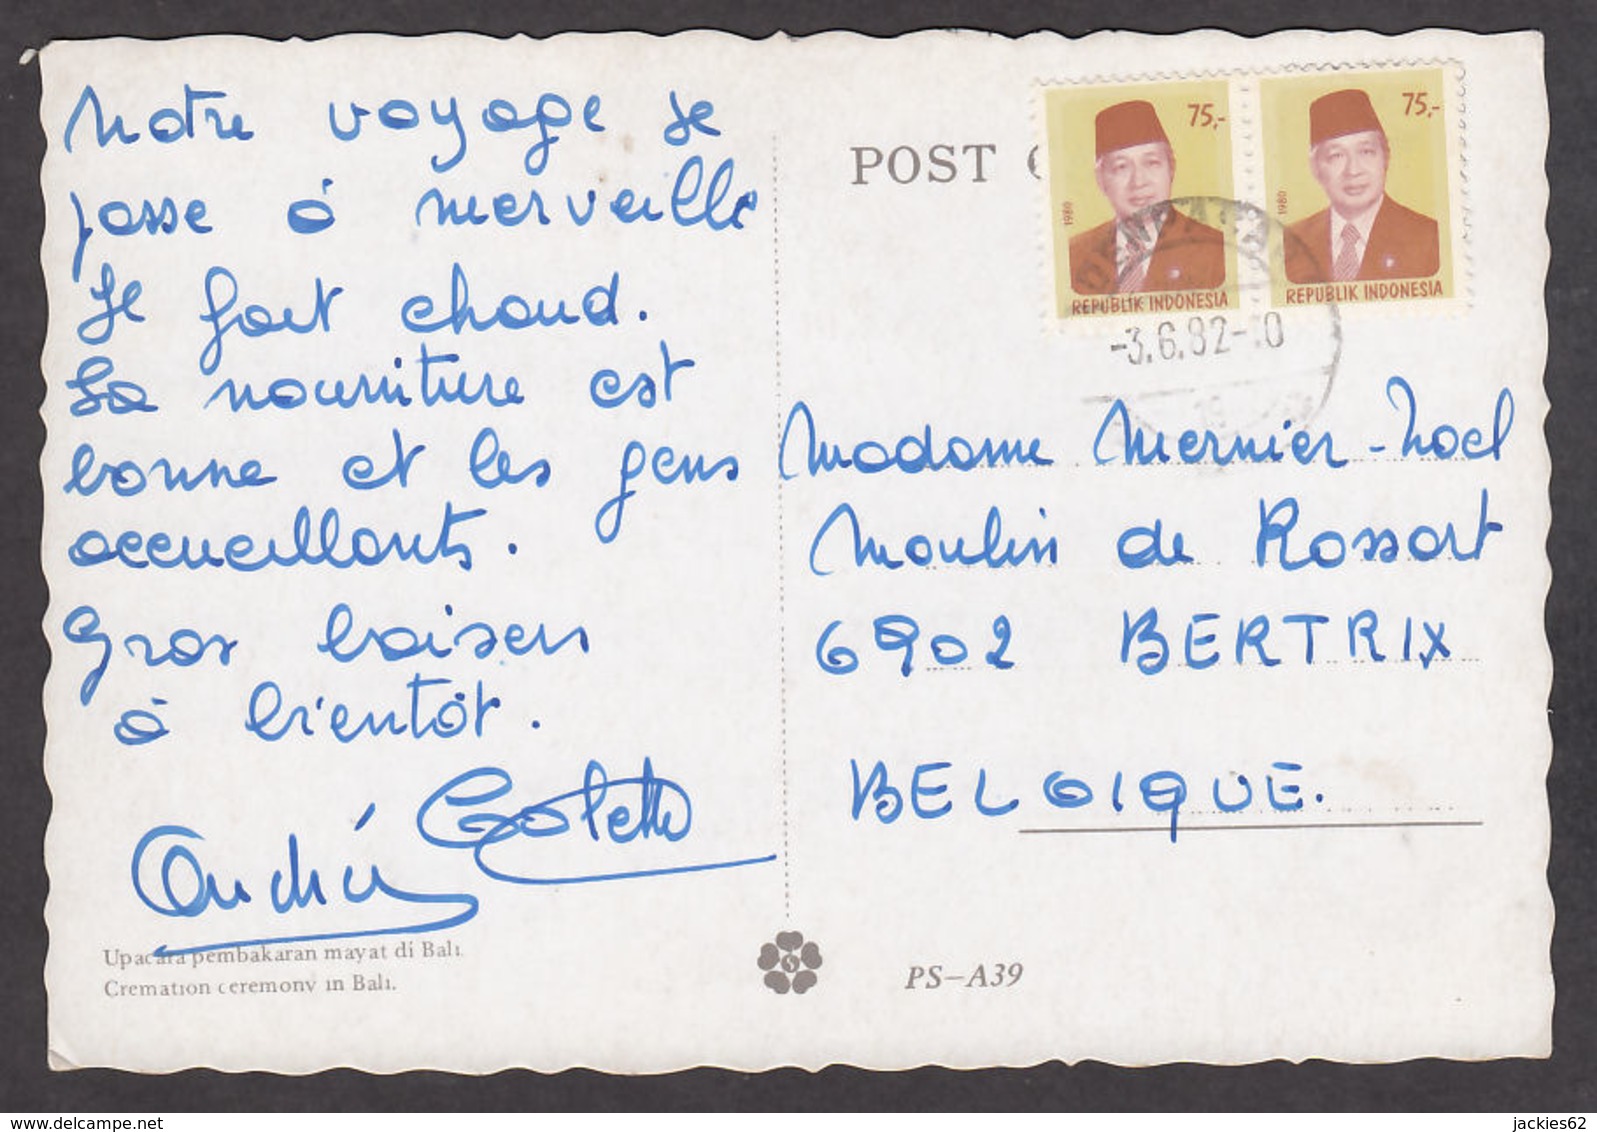 Notre voyage se
passe à merveille
Il fait chaud.
La nourriture est
bonne et les gens
accueillants.
Gros baisers
à bientôt.
Colette
André
Upacara pembakaran mayat di Bali.
Cremation ceremony in Bali.
POST
75,-
1980
REPUBLIK INDONESIA
75,-
1980
REPUBLIK INDONESIA
DENPASAR
-3.6.82-
Madame Mernier-Noel
Moulin de Rossart
6902 BERTRIX
BELGIQUE.
PS-A39
www.delcampe.net
jackies62